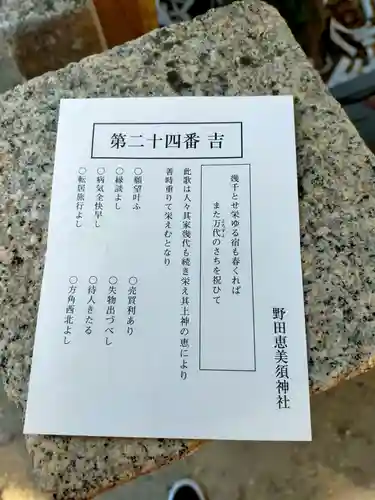 第二十四番 吉
幾千とせ栄ゆる宿も春くれば
また万代のさちを祝ひて
此歌は人々其家幾代も続き栄え其上神の恵により
善時重りて栄えむとなり
○願望叶ふ
○縁談よし
○病気全快早し
○転居旅行よし
○売買利あり
○失物出づべし
○待人きたる
○方角西北よし
野田恵美須神社